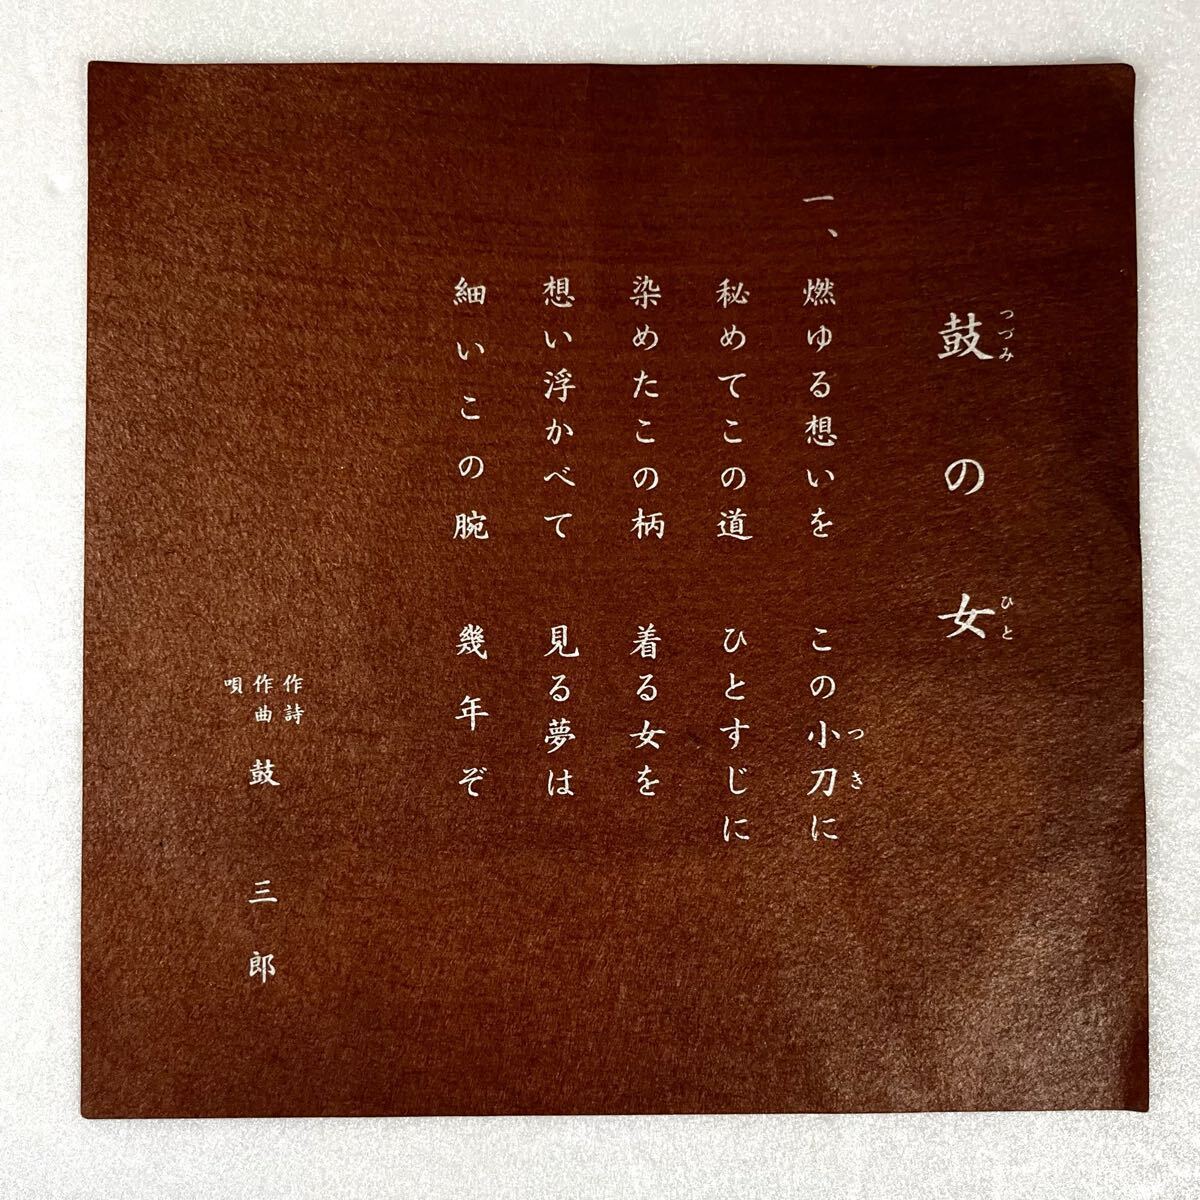 鼓の女
つづみ
ひと
一、燃ゆる想いを　この小刀に
つき
秘めてこの道　ひとすじに
染めたこの柄　着る女を
想い浮かべて　見る夢は
細いこの腕　幾年ぞ
作詩
作曲
唄
鼓　三郎